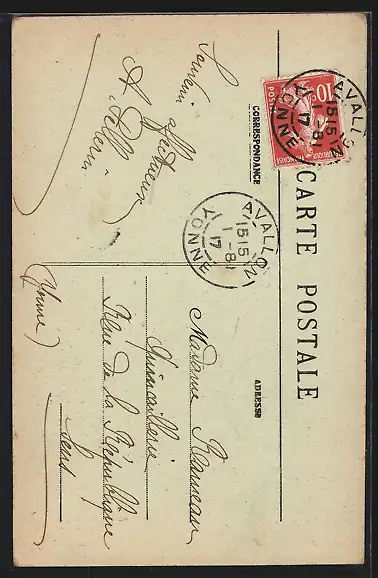 CARTE POSTALE
CORRESPONDANCE
ADRESSE
10c
POSTES
AVALLON
15 15
1-8
17
YONNE
AVALLON
15 15
1-8
17
YONNE
Souvenir affectueux
A Pellerin
Madame
Quincaillerie
Rue de la République
Sens
(Yonne)